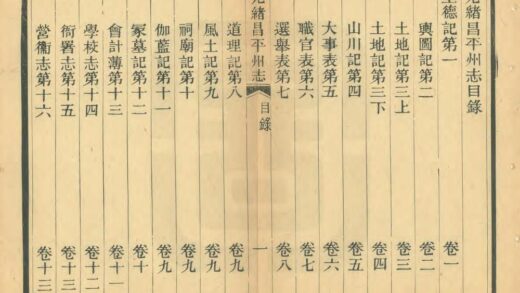 光緒昌平州志目錄
德記第一 卷一
輿圖記第二 卷二
土地記第三上 卷三
土地記第三下 卷四
山川記第四 卷五
大事表第五 卷六
職官表第六 卷七
選舉表第七 卷八
光緒昌平州志 目錄 一
道理記第八 卷九
風土記第九 卷九
祠廟記第十 卷九
伽藍記第十一 卷九
冢墓記第十二 卷十
會計簿第十三 卷十一
學校志第十四 卷十二
衙署志第十五 卷十三
營衞志第十六 卷十三